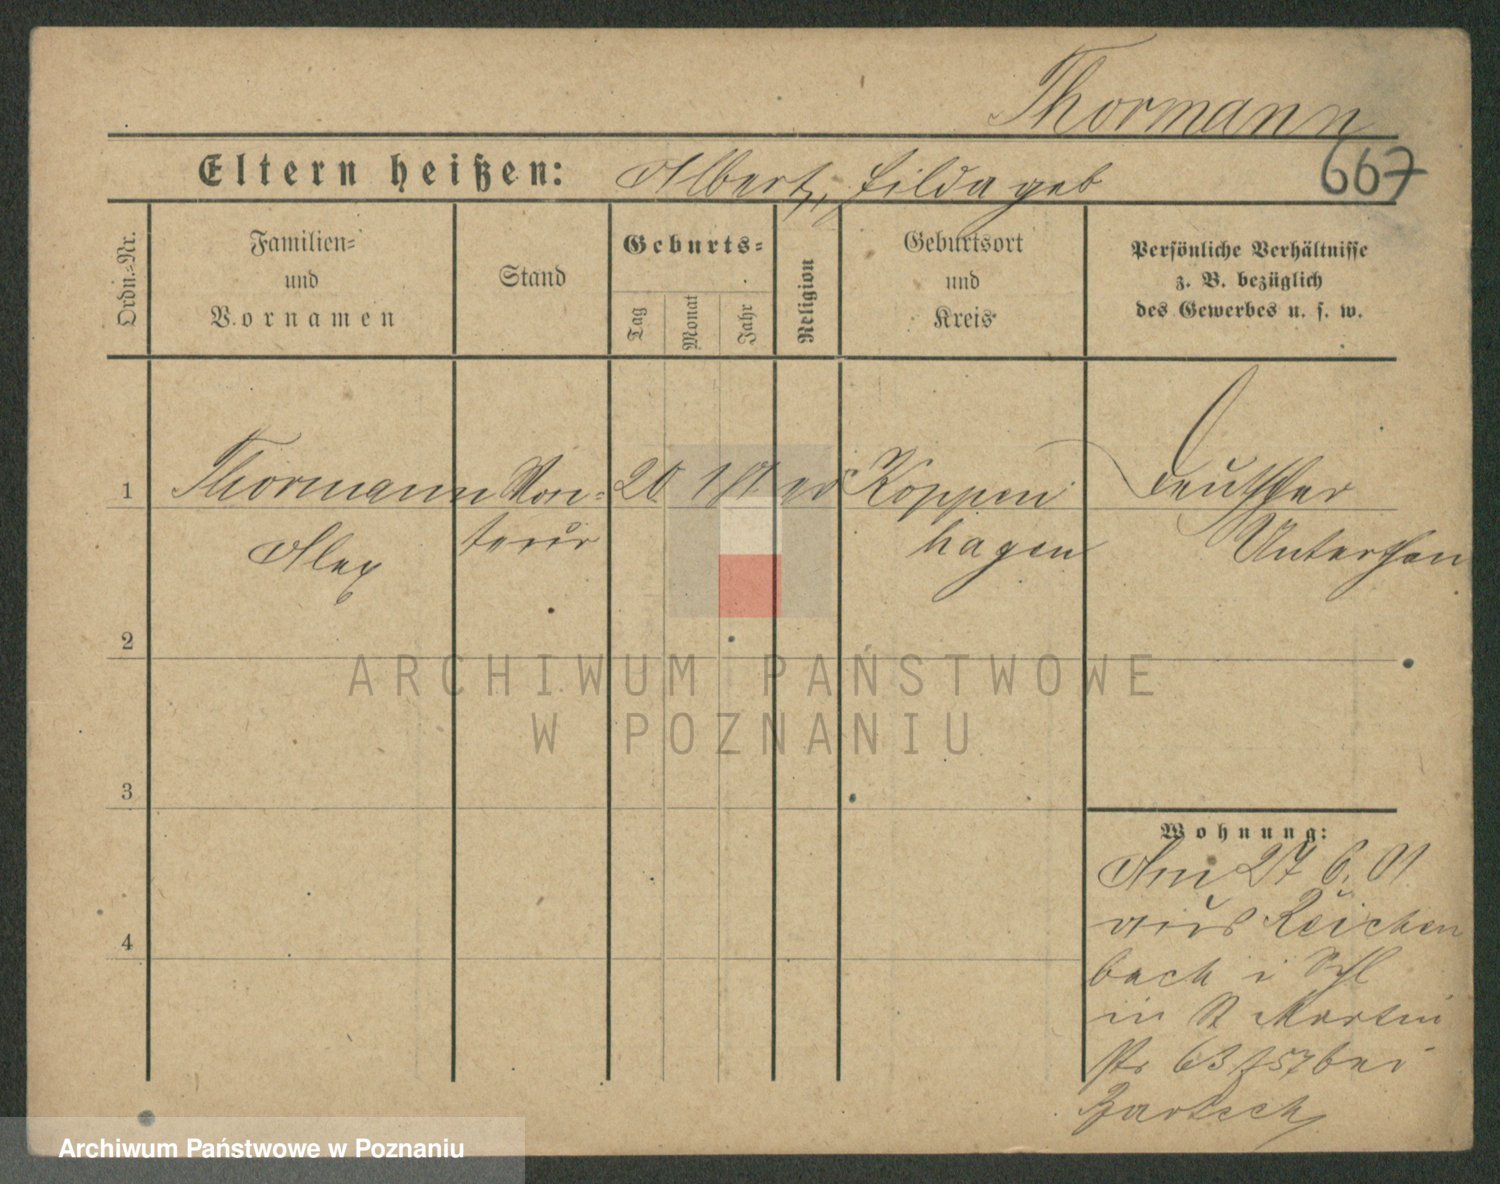 Thormann
667
Eltern heißen: Albert, Hilda geb
Ordn.-Nr.
Familien-
und
Vornamen
Stand
Geburts-
Tag
Monat
Jahr
Religion
Geburtsort
und
Kreis
Persönliche Verhältnisse
z. B. bezüglich
des Gewerbes u. s. w.
1 Thormann Mon- 20 1 81 ev Koppen Deutscher
Alex teur hagen Unterthan
2
3
4
ARCHIWUM PAŃSTWOWE
W POZNANIU
Wohnung:
Am 27 6. 01
aus Reichen
bach i Schl
in St Martin
str 63 bei
Archiwum Państwowe w Poznaniu